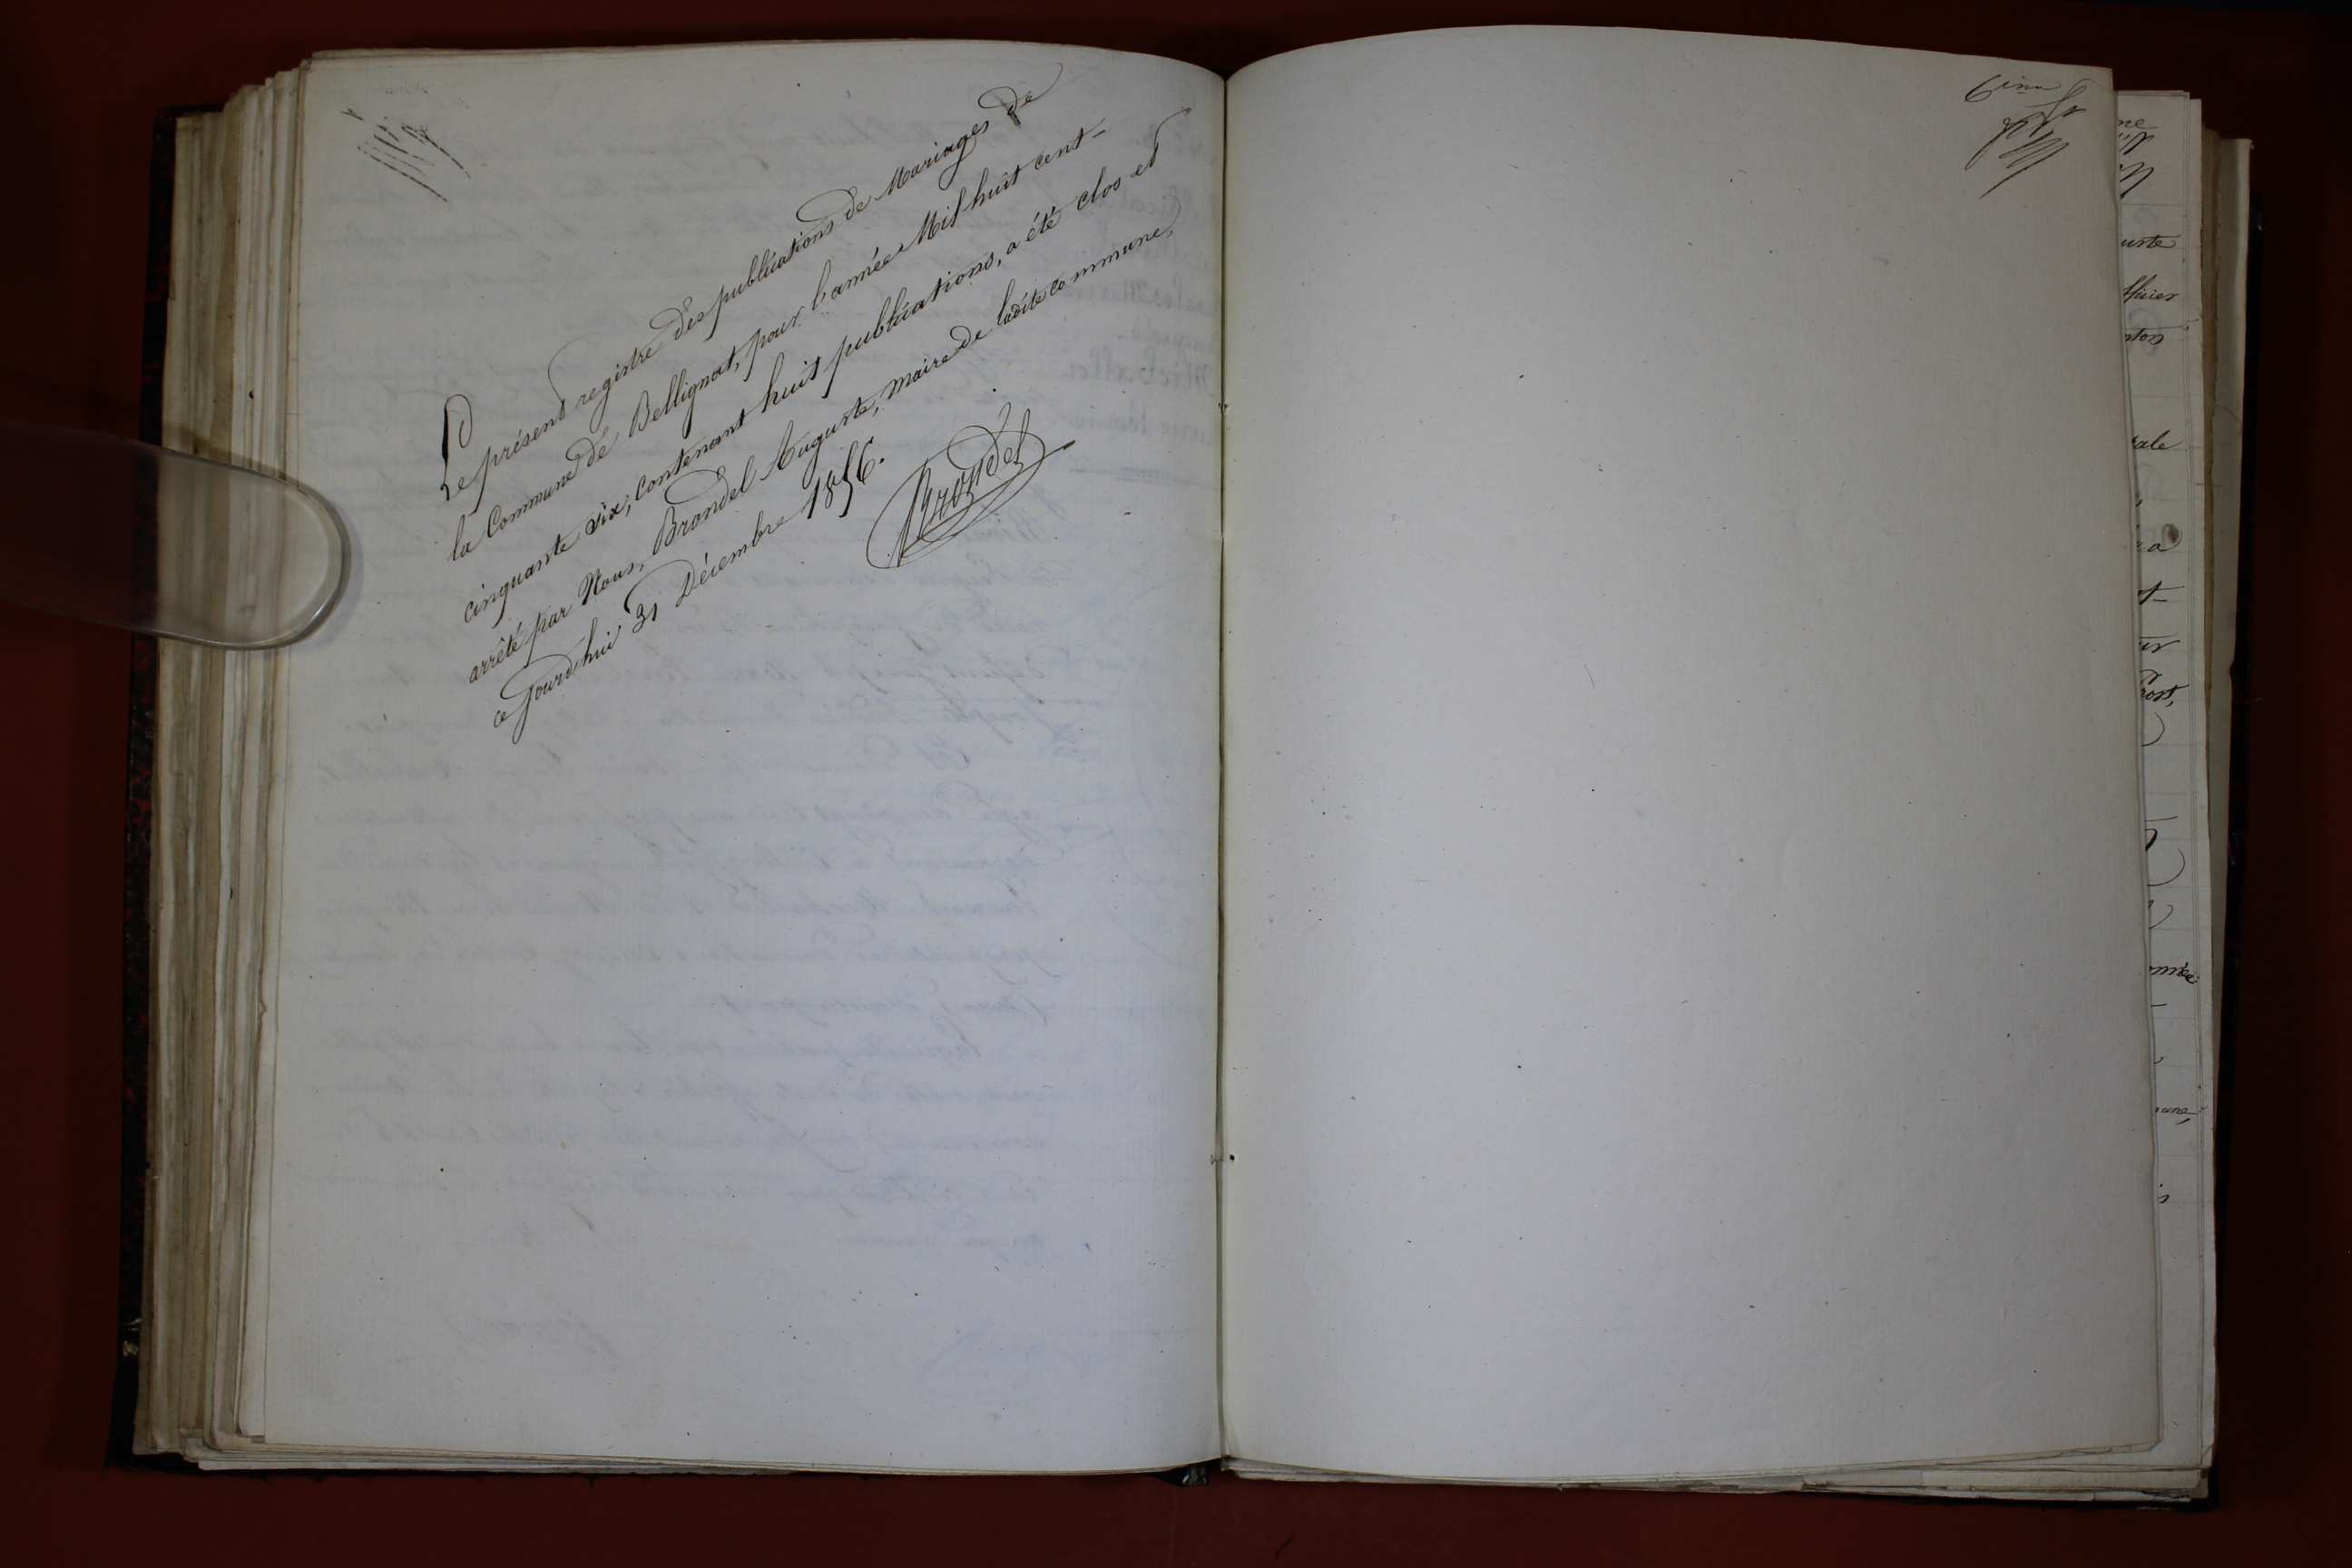 Le présent registre des publications de Mariages de
la Commune de Bellignat, pour l'année Mil huit cent-
cinquante six, contenant huit publications, a été clos et
arrêté par Nous, Brondel Auguste, Maire de ladite commune,
ce jourd'hui 31 Décembre 1856.
Brondel
6ème
uste
fficier
rale
Prost,